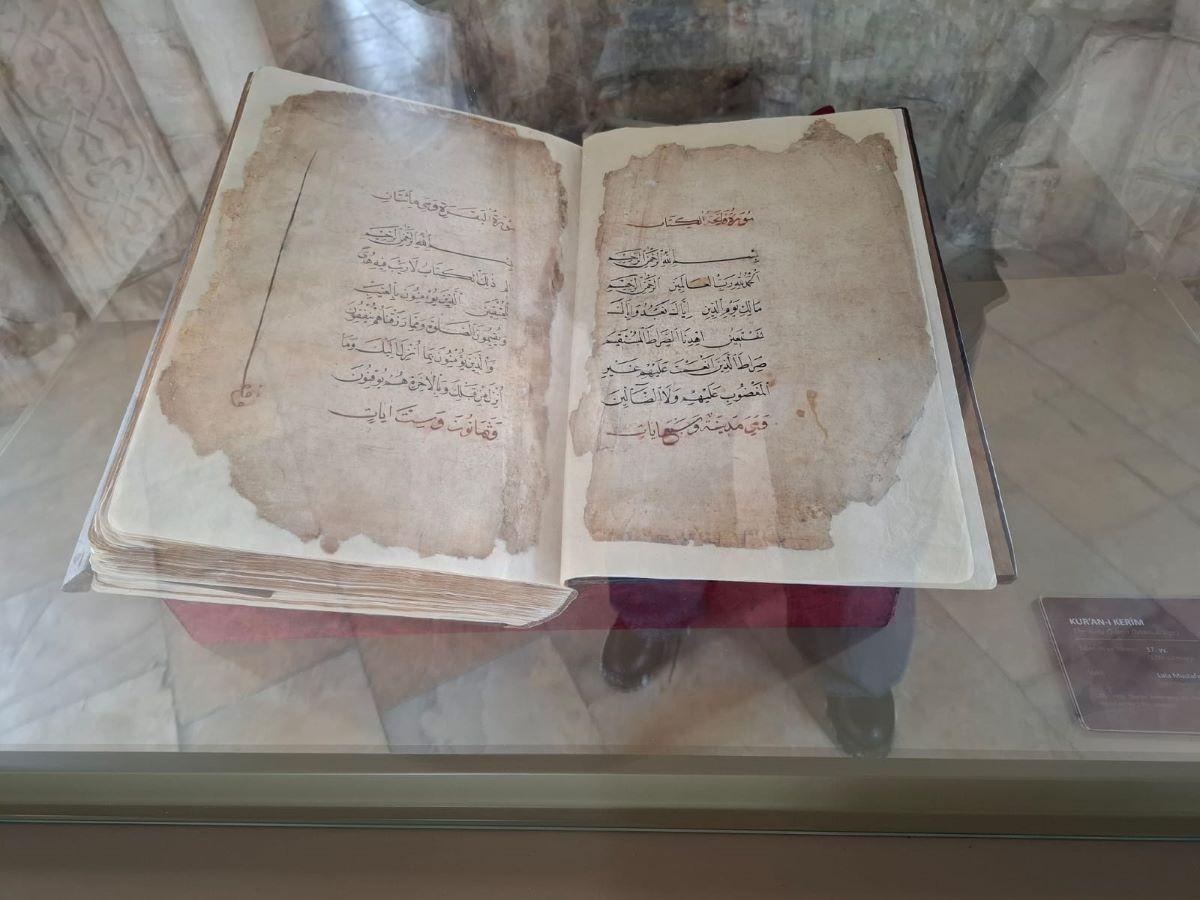 سورة فاتحة الكتاب
بسم الله الرحمن الرحيم
الحمد لله رب العالمين الرحمن الرحيم
مالك يوم الدين إياك نعبد وإياك
نستعين اهدنا الصراط المستقيم
صراط الذين أنعمت عليهم غير
المغضوب عليهم ولا الضالين
وهي مدينة وسبع ايات
سورة البقرة وهي مائتان
بسم الله الرحمن الرحيم
الم ذلك الكتاب لا ريب فيه هدى
للمتقين الذين يؤمنون بالغيب
ويقيمون الصلوة ومما رزقناهم ينفقون
والذين يؤمنون بما أنزل اليك وما
أنزل من قبلك وبالآخرة هم يوقنون
وثمانون وست ايات
KUR'AN-I KERİM
17. yy.
Lala Mustafa